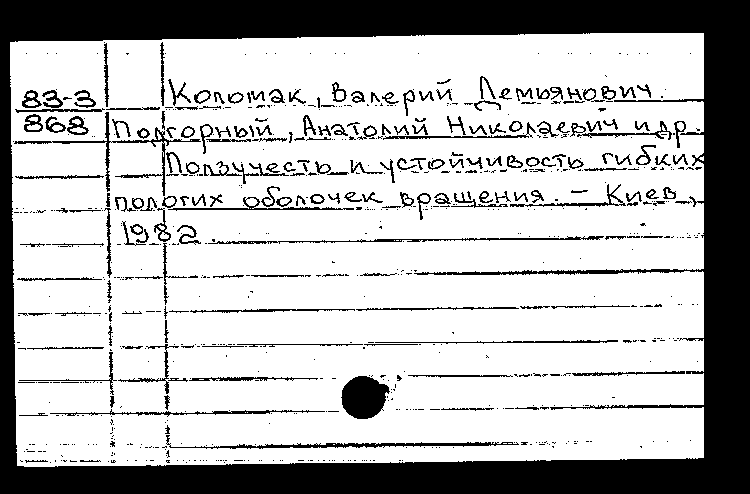 83-3 Коломак, Валерий Демьянович.
868 Подгорный, Анатолий Николаевич и др.
Ползучесть и устойчивость гибких
пологих оболочек вращения. – Киев,
1982.